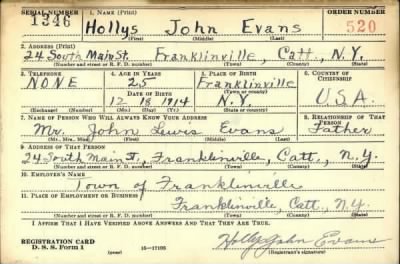 SERIAL NUMBER 1. NAME (Print) ORDER NUMBER
1346 Hollys John Evans 520
(First) (Middle) (Last)
2. ADDRESS (Print)
24 South Main St. Franklinville, Catt., N.Y.
(Number and street or R. F. D. number) (Town) (County) (State)
3. TELEPHONE 4. AGE IN YEARS 5. PLACE OF BIRTH 6. COUNTRY OF CITIZENSHIP
NONE 25 Franklinville
DATE OF BIRTH (Town or county)
12 18 1914 N.Y. U.S.A.
(Exchange) (Number) (Mo.) (Day) (Yr.) (State or country)
7. NAME OF PERSON WHO WILL ALWAYS KNOW YOUR ADDRESS 8. RELATIONSHIP OF THAT PERSON
Mr. John Lewis Evans Father
(Mr., Mrs., Miss) (First) (Middle) (Last)
9. ADDRESS OF THAT PERSON
24 South Main St., Franklinville, Catt., N.Y.
(Number and street or R. F. D. number) (Town) (County) (State)
10. EMPLOYER'S NAME
Town of Franklinville
11. PLACE OF EMPLOYMENT OR BUSINESS
Franklinville, Catt., N.Y.
(Number and street or R. F. D. number) (Town) (County) (State)
I AFFIRM THAT I HAVE VERIFIED ABOVE ANSWERS AND THAT THEY ARE TRUE.
REGISTRATION CARD
D. S. S. Form 1 (over) 16—17105 Hollys John Evans
(Registrant's signature)